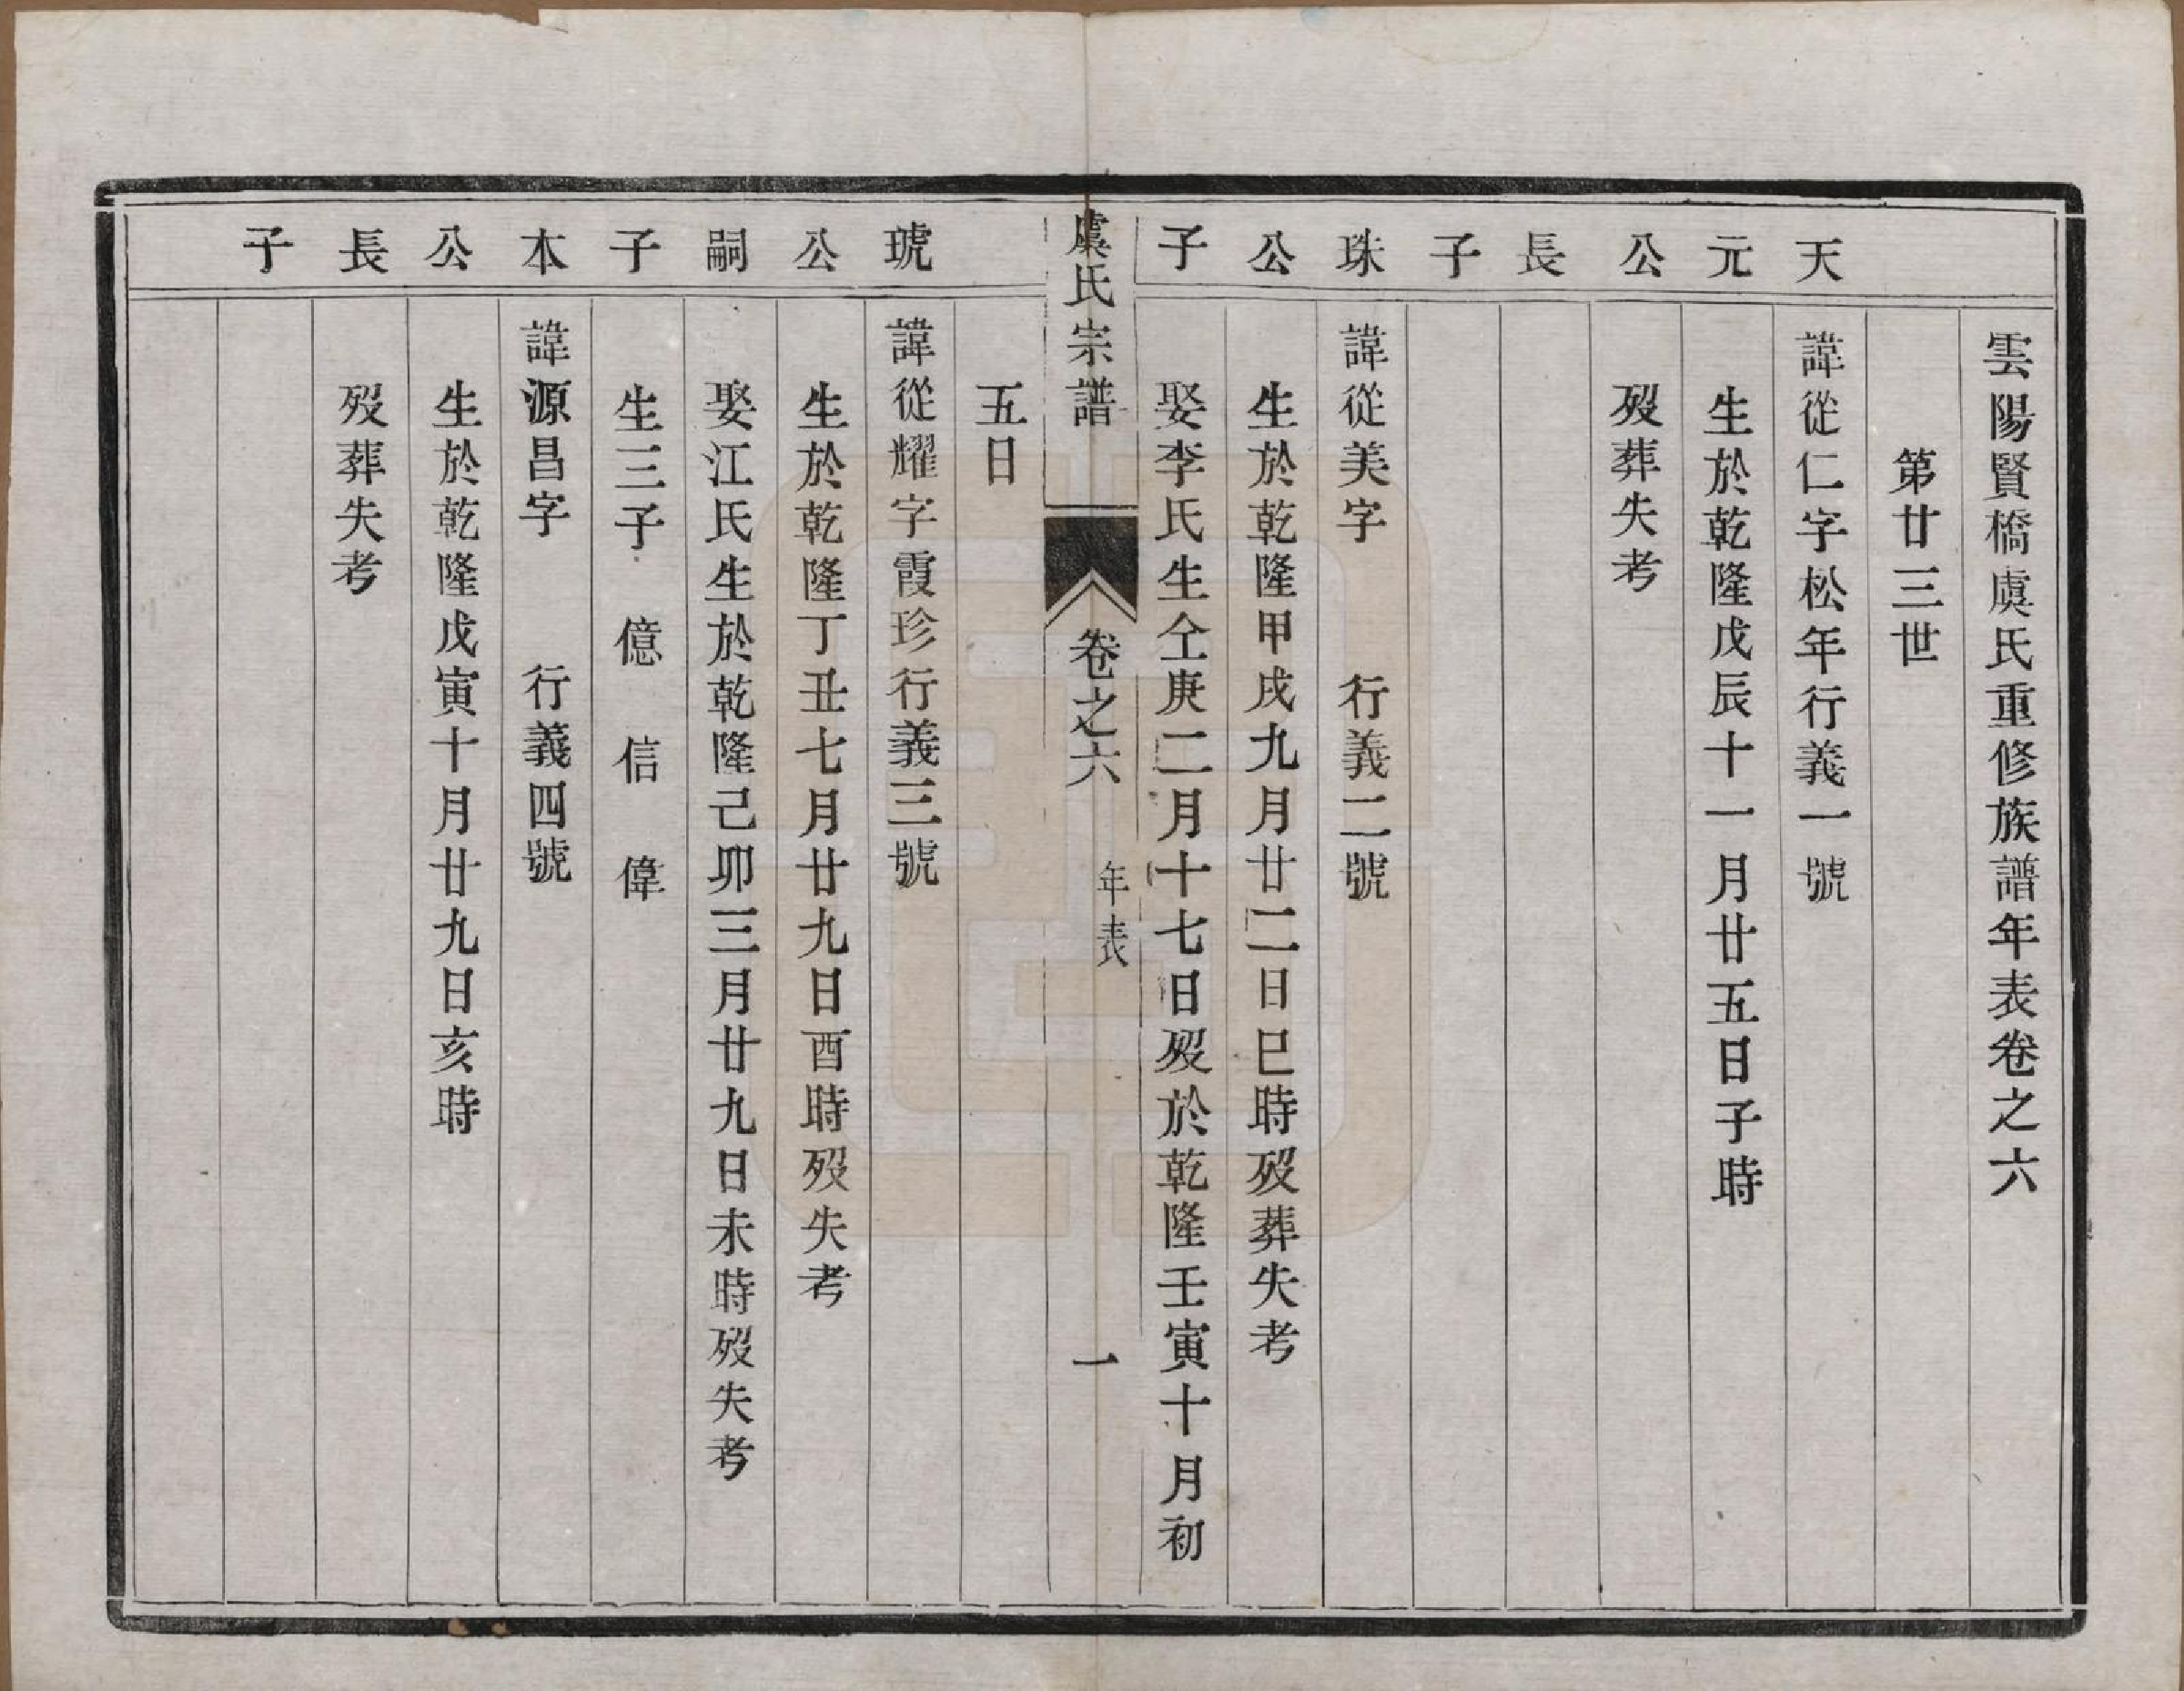 雲陽賢橋虞氏重修族譜年表卷之六
第廿三世
天元公長子
諱從仁字松年行義一號
生於乾隆戊辰十一月廿五日子時
歿葬失考
珠公子
諱從美字 行義二號
生於乾隆甲戌九月廿二日巳時歿葬失考
娶李氏生仝庚二月十七日歿於乾隆壬寅十月初
虞氏宗譜 卷之六 年表 一
五日
琥公嗣子
諱從耀字霞珍行義三號
生於乾隆丁丑七月廿九日酉時歿失考
娶江氏生於乾隆己卯三月廿九日未時歿失考
生三子 億 信 偉
本公長子
諱源昌字 行義四號
生於乾隆戊寅十月廿九日亥時
歿葬失考